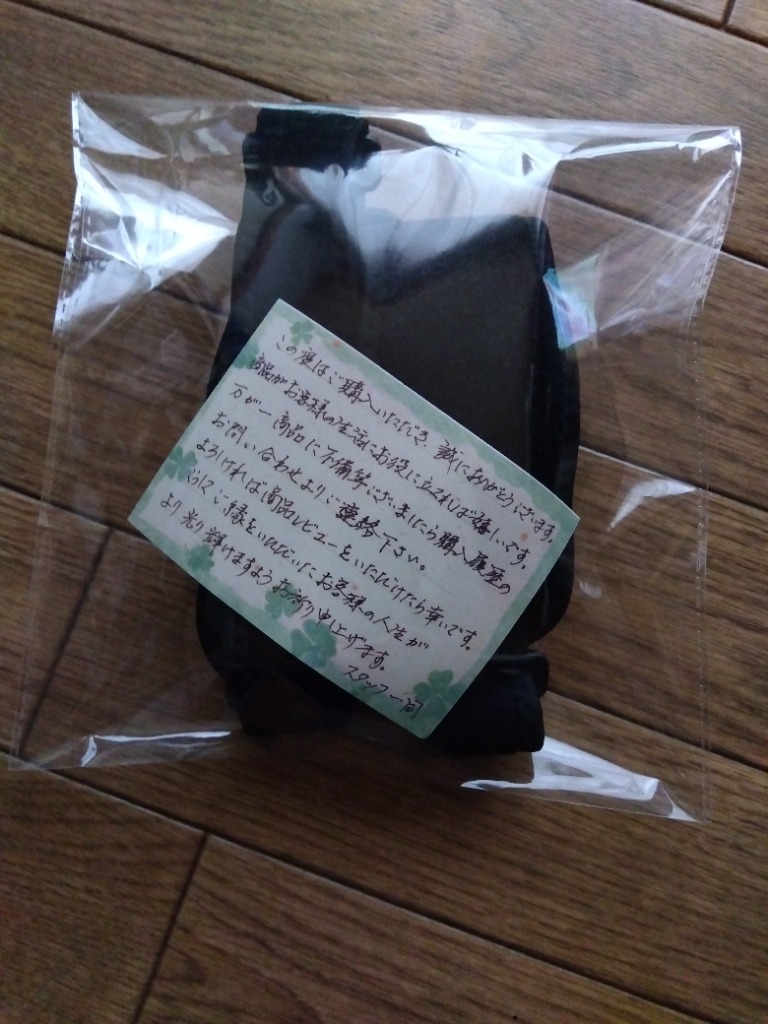 この度はご購入いただき、誠にありがとうございます。
商品がお客様の生活にお役に立てれば嬉しいです。
万が一商品に不備等ございましたら購入履歴の
お問い合わせよりご連絡下さい。
よろしければ商品レビューをいただけたら幸いです。
らにご縁をいただいたお客様の人生が
より光り輝けますようお祈り申し上げます。
スタッフ一同